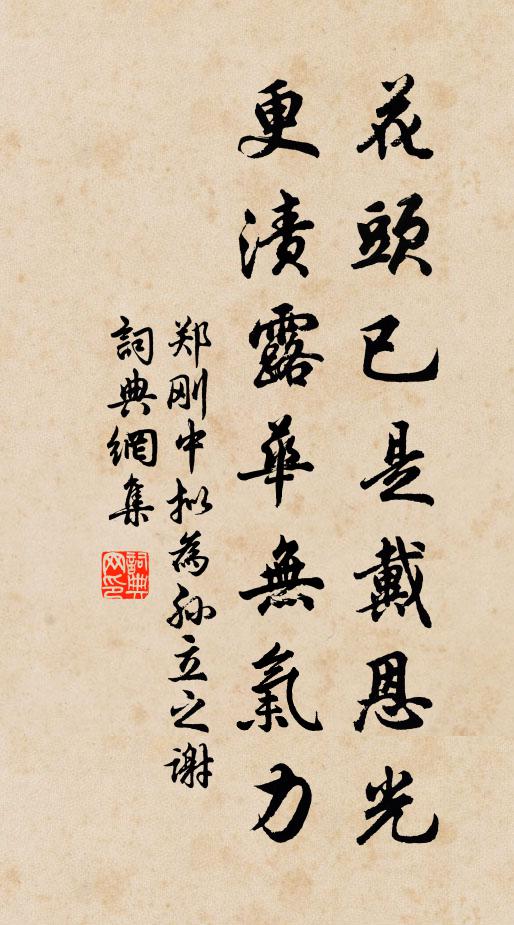 花頭已是戴恩光
更漬露華無氣力
郑刚中拟為孙立之謝
詞典網集
詞典网印